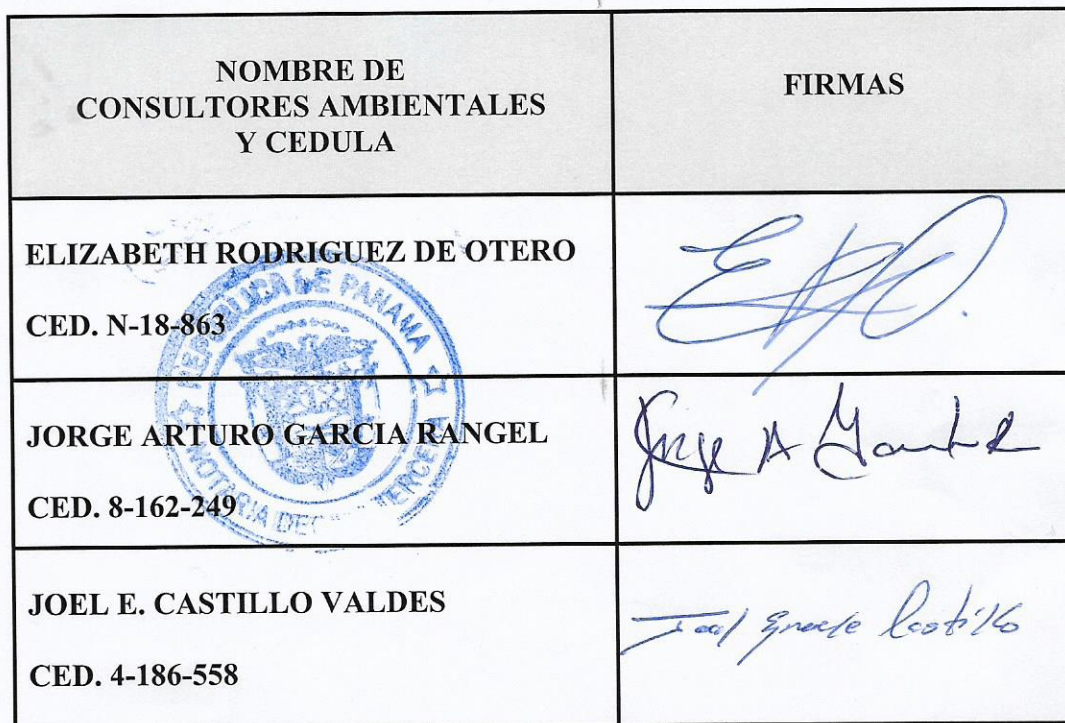 NOMBRE DE
CONSULTORES AMBIENTALES
Y CEDULA
FIRMAS
ELIZABETH RODRIGUEZ DE OTERO
CED. N-18-863
JORGE ARTURO GARCIA RANGEL
CED. 8-162-249
Jorge A
JOEL E. CASTILLO VALDES
CED. 4-186-558
Castillo
REPUBLICA DE PANAMA
NOTARIA